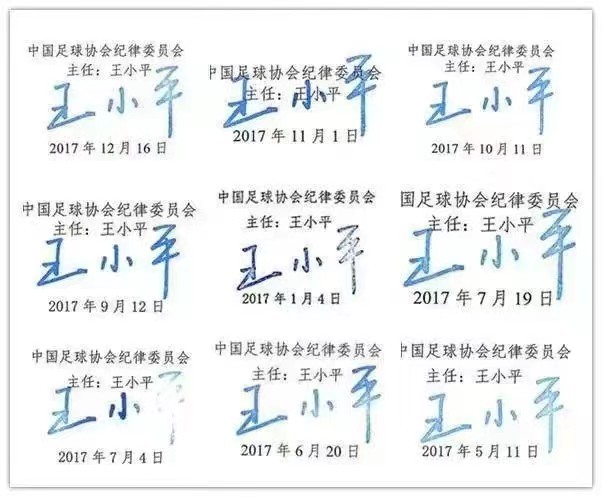 中国足球协会纪律委员会
主任：王小平
王小平
2017年12月16日
中国足球协会纪律委员会
主任：王小平
王小平
2017年11月1日
中国足球协会纪律委员会
主任：王小平
王小平
2017年10月11日
中国足球协会纪律委员会
主任：王小平
王小平
2017年9月12日
中国足球协会纪律委员会
主任：王小平
王小平
2017年1月4日
国足球协会纪律委员会
主任：王小平
王小平
2017年7月19日
中国足球协会纪律委员会
主任：王小平
王小平
2017年7月4日
中国足球协会纪律委员会
主任：王小平
王小平
2017年6月20日
中国足球协会纪律委员会
主任：王小平
王小平
2017年5月11日